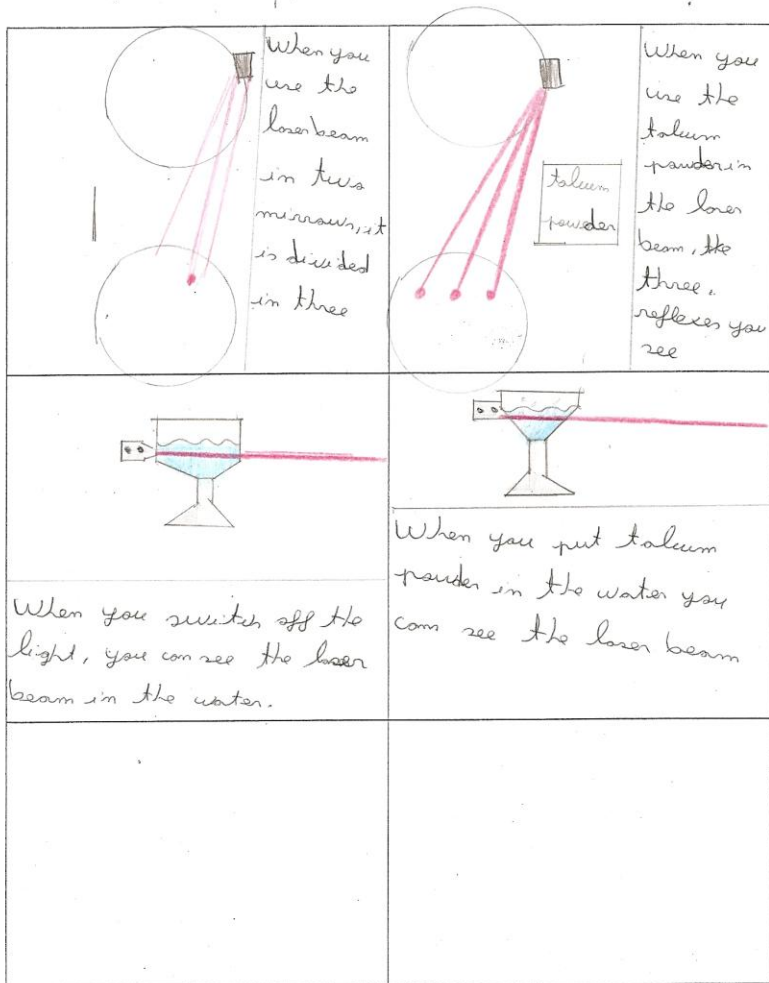 When you
use the
laser beam
in two
mirrows, it
is divided
in three
When you
use the
talcum
powder in
the laser
beam, the
three,
reflexes you
see
talcum
powder
When you switch off the
light, you can see the laser
beam in the water.
When you put talcum
powder in the water you
can see the laser beam